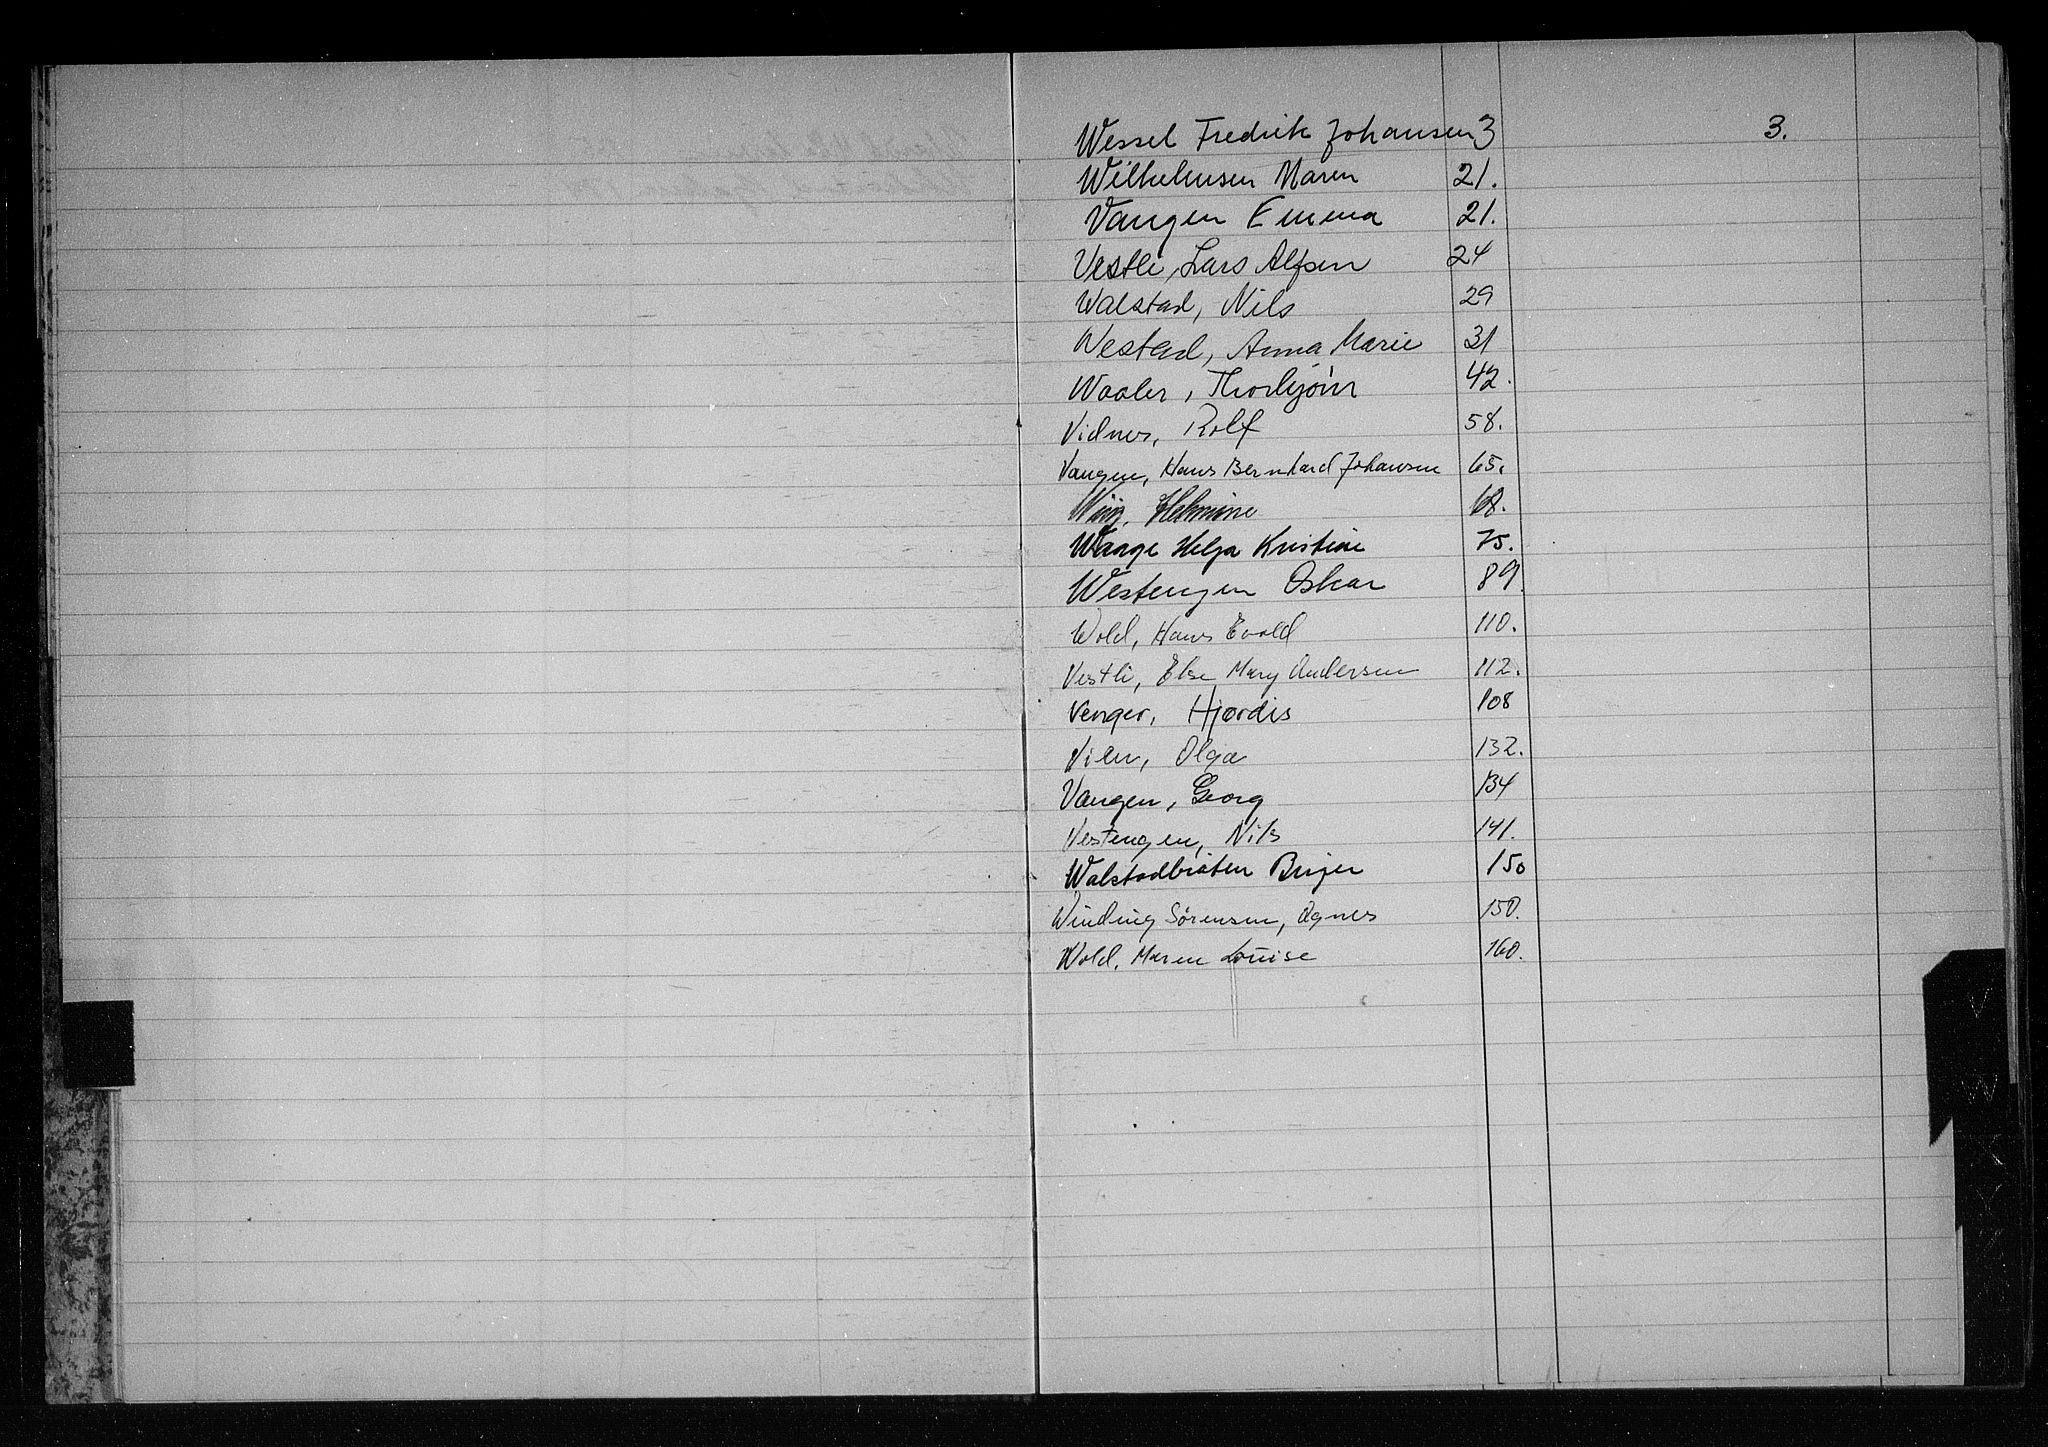 Wessel Fredrik Johansen 3 3.
Wilhelmsen Maren 21.
Vangen Emma 21.
Vestli, Lars Alfsen 24
Walstad, Nils 29
Westad, Anna Marie 31
Waaler, Thorbjørn 42.
Vidnes, Rolf 58.
Vangen, Hans Bernhard Johansen 65.
Helmine 68.
Waage Helga Kristine 75.
Westengen Oskar 89.
Wold, Hans Evald 110.
Vestli, Else Mary Andersen 112.
Venger, Hjørdis 108
Vien, Olga 132.
Vangen, Georg 134
Vestengen, Nils 141.
Walstadbråten Birger 150
Winding Sørensen, Agnes 150.
Wold, Maren Louise 160.
V
W